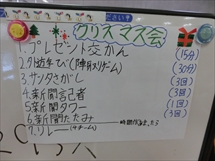 クリスマス会
1.プレゼント交かん (15分)
2.外遊び(陣取りゲーム) (30分)
3.サンタさがし (3回)
4.新聞記者 (3回)
5.新聞タワー (3回)
6.新聞たたみ
時間があまったら
7.リレー(4チーム)